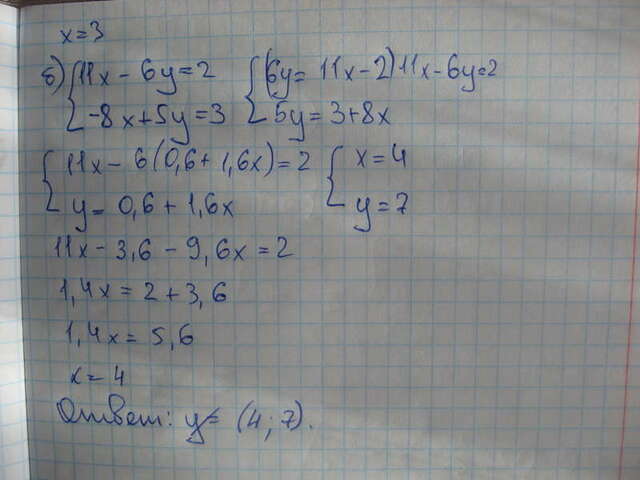 x=3
б) { 11x - 6y = 2 { (6y = 11x - 2) 11x - 6y = 2
-8x + 5y = 3 5y = 3 + 8x
{ 11x - 6(0,6 + 1,6x) = 2 { x = 4
y = 0,6 + 1,6x y = 7
11x - 3,6 - 9,6x = 2
1,4x = 2 + 3,6
1,4x = 5,6
x = 4
Ответ: y= (4; 7).